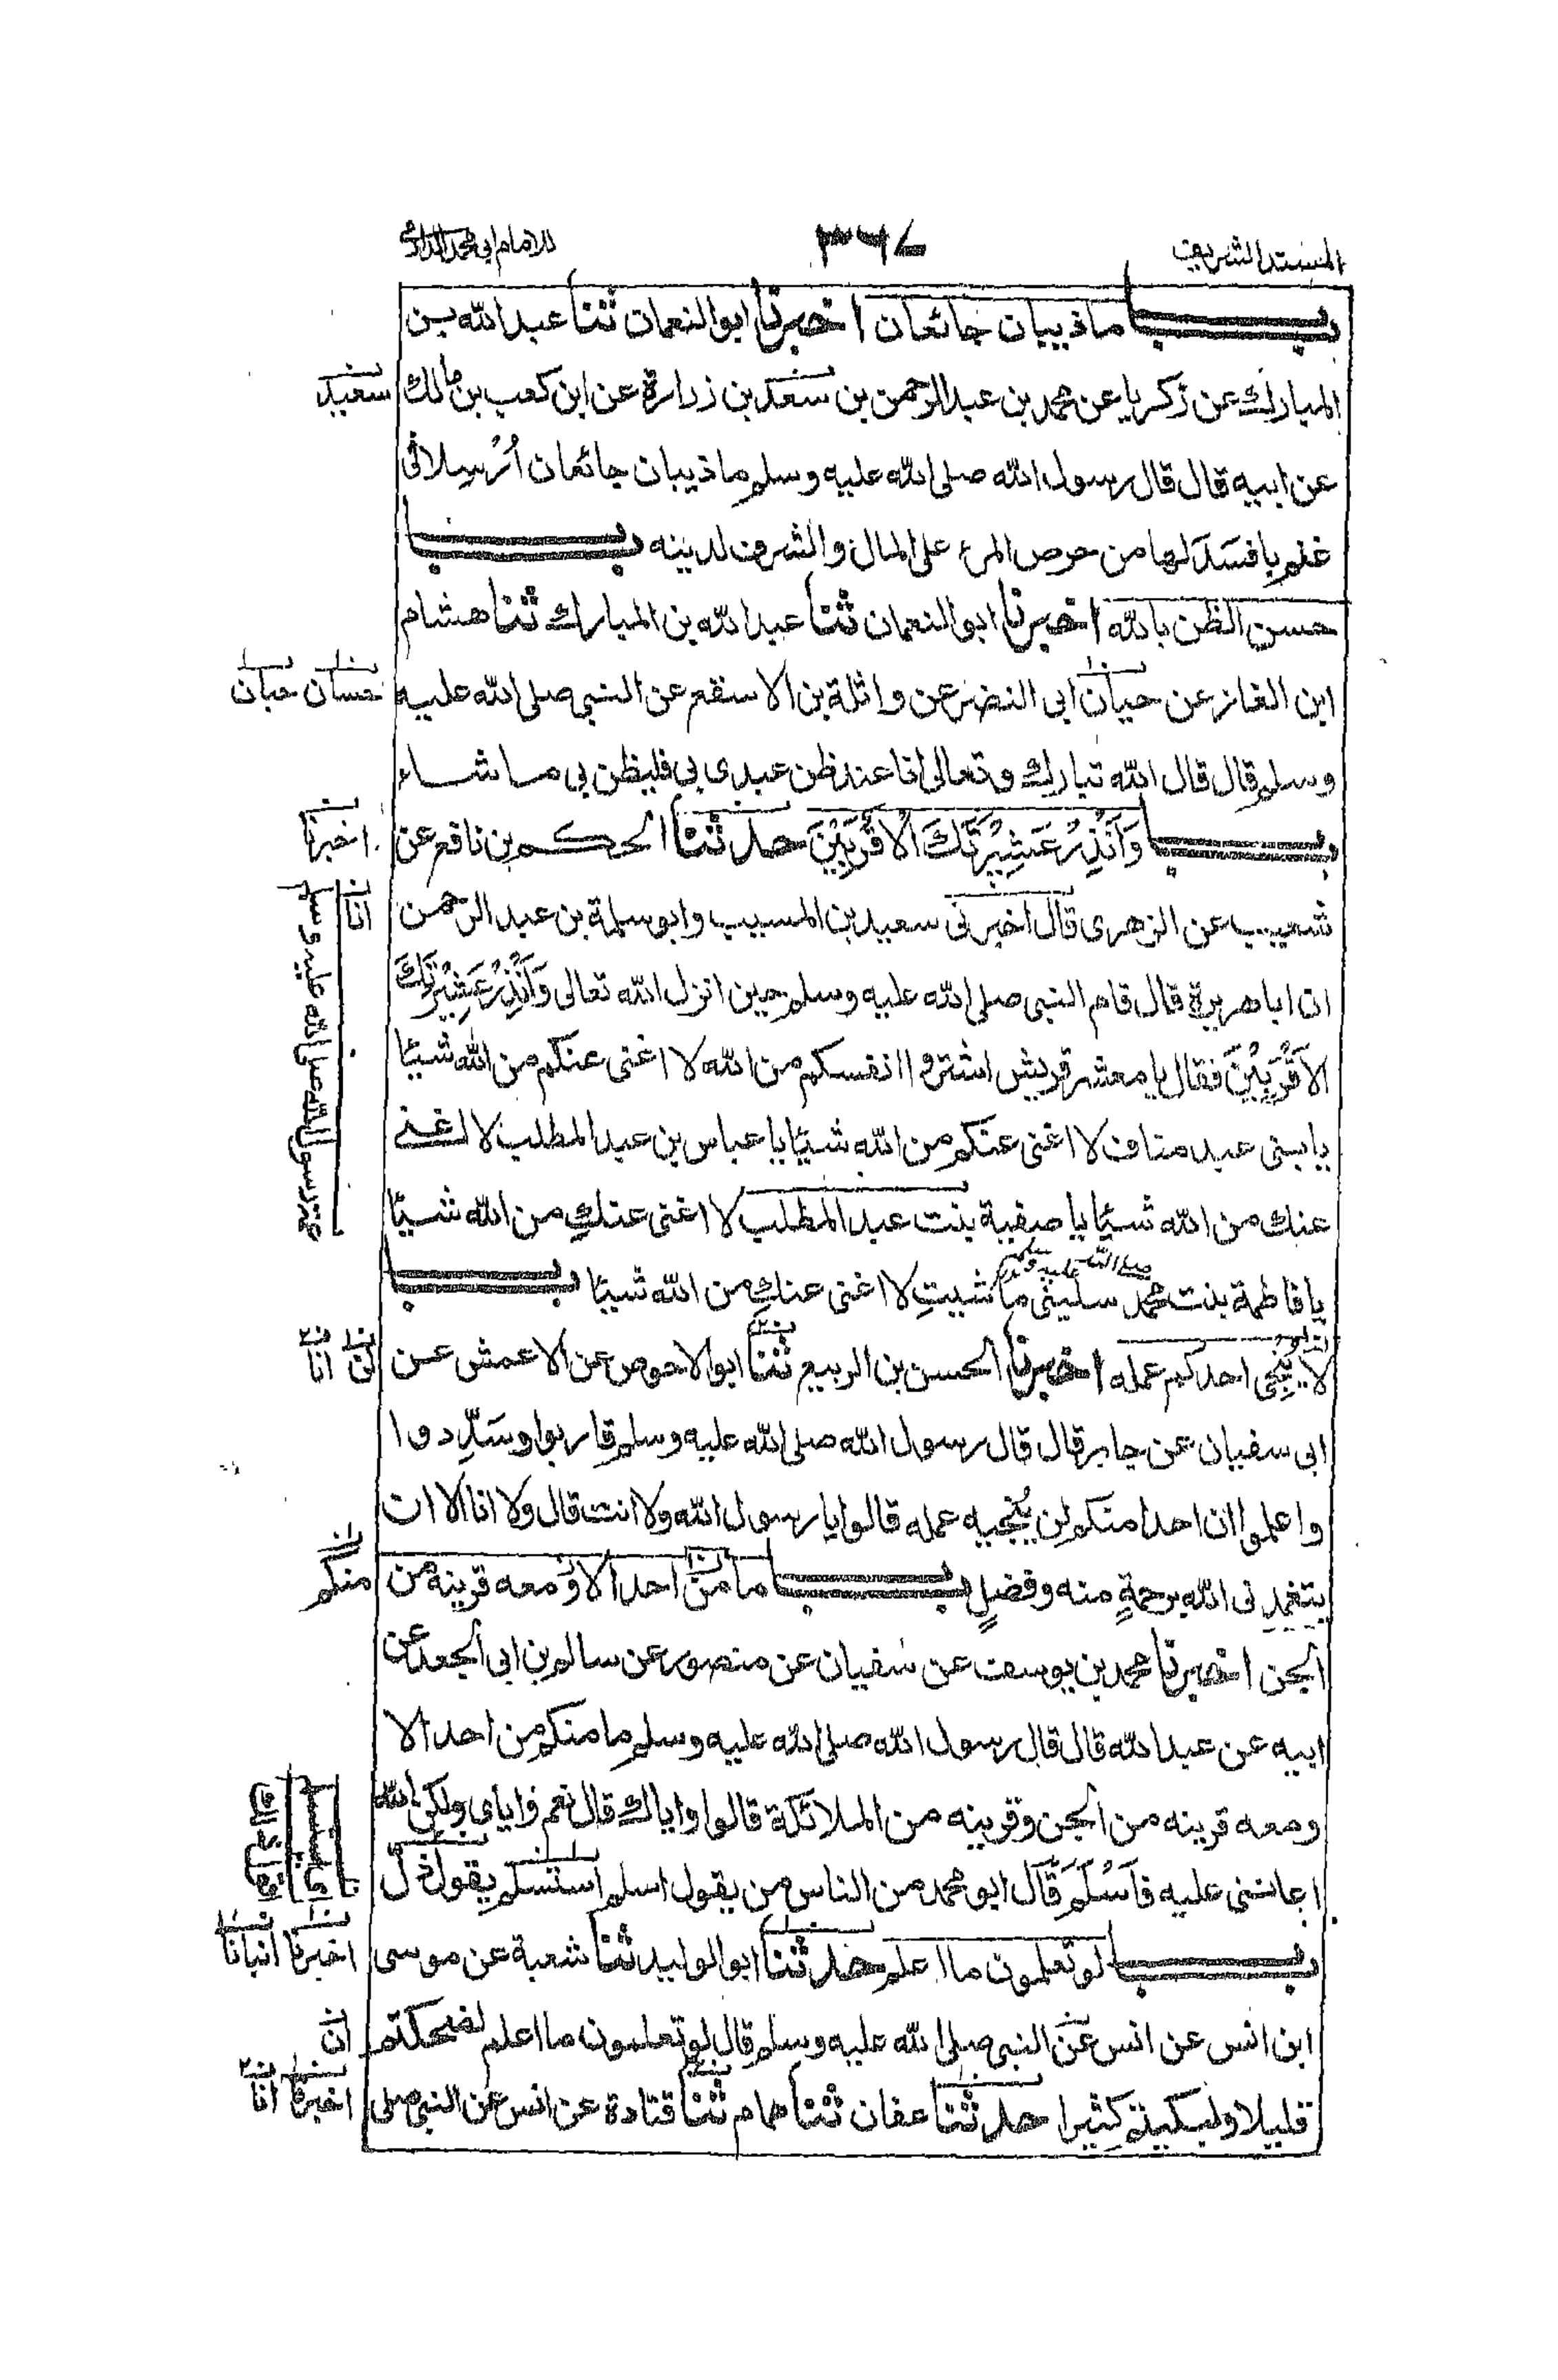 المسند الشريف
٣٦٧
للامام ابي محمد الدارمي
بــاب ماذيبان جائعان اخبرنا ابو النعمان ثنا عبد الله بن
المبارك عن زكريا عن محمد بن عبد الرحمن بن سعد بن زرارة عن ابن كعب بن مالك
سعيد
عن ابيه قال قال رسول الله صلى الله عليه وسلم ماذيبان جائعان اُرْسِلا في
غنم بافسَدَ لها من حرص المرء على المال والشرف لدينه بــاب
حسن الظن بالله اخبرنا ابو النعمان ثنا عبد الله بن المبارك ثنا هشام
ابن الغاز عن حيان ابي النضر عن واثلة بن الاسقع عن النبي صلى الله عليه
حسان حبان
وسلم قال قال الله تبارك وتعالى انا عند ظن عبدي بي فليظن بي ما شاء
بــاب وَاَنْذِرْ عَشِيْرَتَكَ الْاَقْرَبِيْنَ حدثنا الحكم بن نافع عن
اخبرنا
شعيب عن الزهري قال اخبرني سعيد بن المسيب وابو سلمة بن عبد الرحمن
انا
ان ابا هريرة قال قام النبي صلى الله عليه وسلم حين انزل الله تعالى وَاَنْذِرْ عَشِيْرَتَكَ
الاَقْرَبِيْنَ فقال يا معشر قريش اشتروا انفسكم من الله لا اغنى عنكم من الله شيئا
يا بنى عبد مناف لا اغنى عنكم من الله شيئا يا عباس بن عبد المطلب لا اغنى
عنك من الله شيئا يا صفية بنت عبد المطلب لا اغنى عنكِ من الله شيئا
عمة رسول الله صلى الله عليه وسلم
يا فاطمة بنت محمد سليني ما شيتِ لا اغنى عنكِ من الله شيئا بــاب
صلى الله عليه وسلم
لا يُنْجِى احدكم عمله اخبرنا الحسن بن الربيع ثنا ابو الاحوص عن الاعمش عن
لن انا
ابى سفيان عن جابر قال قال رسول الله صلى الله عليه وسلم قاربوا وسَدِّدوا
واعلموا ان احدا منكم لن يُنْجيه عمله قالوا يا رسول الله ولا انت قال ولا انا الا ان
يتغمدني الله برحمةٍ منه وفضلٍ بــاب ما من احد الا وَمعه قرينه من
منكم
الجن اخبرنا محمد بن يوسف عن سفيان عن منصور عن سالم بن ابي الجعد عن
ابيه عن عبد الله قال قال رسول الله صلى الله عليه وسلم ما منكم من احد الا
ومعه قرينه من الجن وقرينه من الملائكة قالوا واياك قال نعم واياى ولكن الله
اعاننى عليه فَاَسْلَمَ قَالَ ابو محمد من الناس من يقول اسلم استسلم يقول ذل
بــاب لو تعلمون ما اعلم حدثنا ابو الوليد ثنا شعبة عن موسى
اخبرنا انبانا
ابن انس عن انس عن النبي صلى الله عليه وسلم قال لو تعلمون ما اعلم لضحكتم
ان
قليلا ولبكيتم كثيرا حدثنا عفان ثنا همام ثنا قتادة عن انس عن النبي صلى
اخبرنا انا